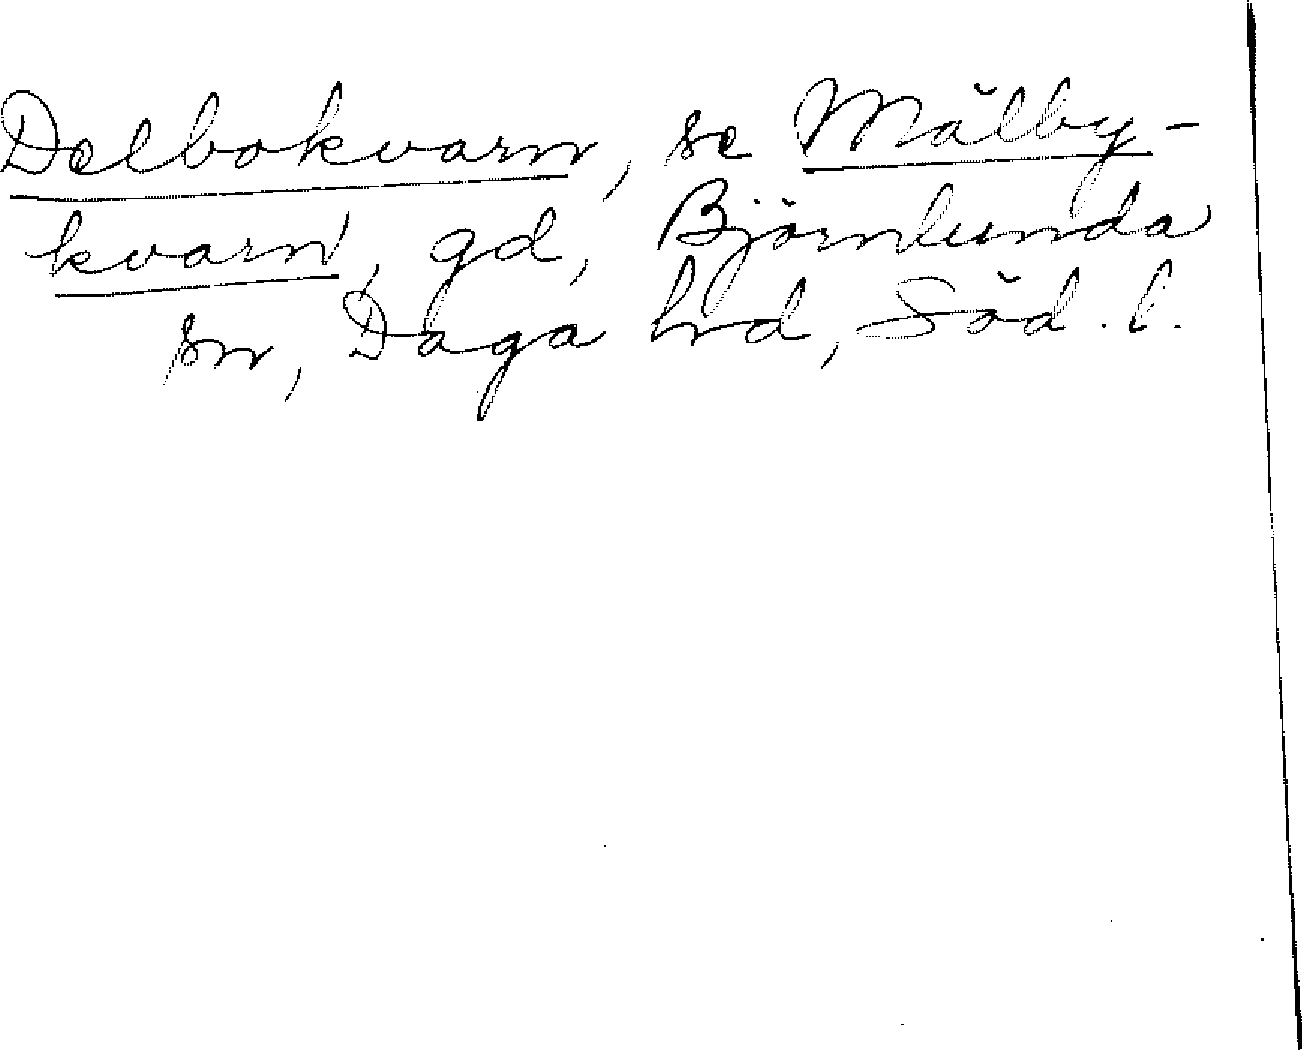 Delbokvarn, se Målby-
kvarn, gd, Björnlunda
sn, Daga hd, Söd. l.